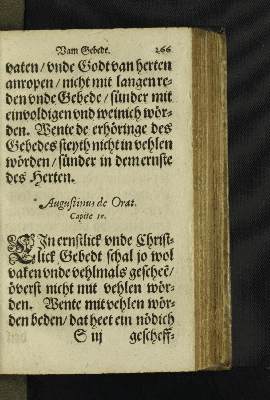 Vam Gebedt. 266
vaten / vnde Godt van herten
anropen / nicht mit langen re-
den vnde Gebede / sünder mit
einvoldigen vnd weinich wör-
den. Wente de erhöringe des
Gebedes steyth nicht in vehlen
wörden / sünder in dem ernste
des Herten.
* Augustinus de Orat.
Capite 10.
EIn ernstlick vnde Christ-
lick Gebedt schal jo wol
vaken vnde vehlmals gescheē /
överst nicht mit vehlen wör-
den. Wente mit vehlen wör-
den beden / dat heet ein nödich
S iij gescheff-